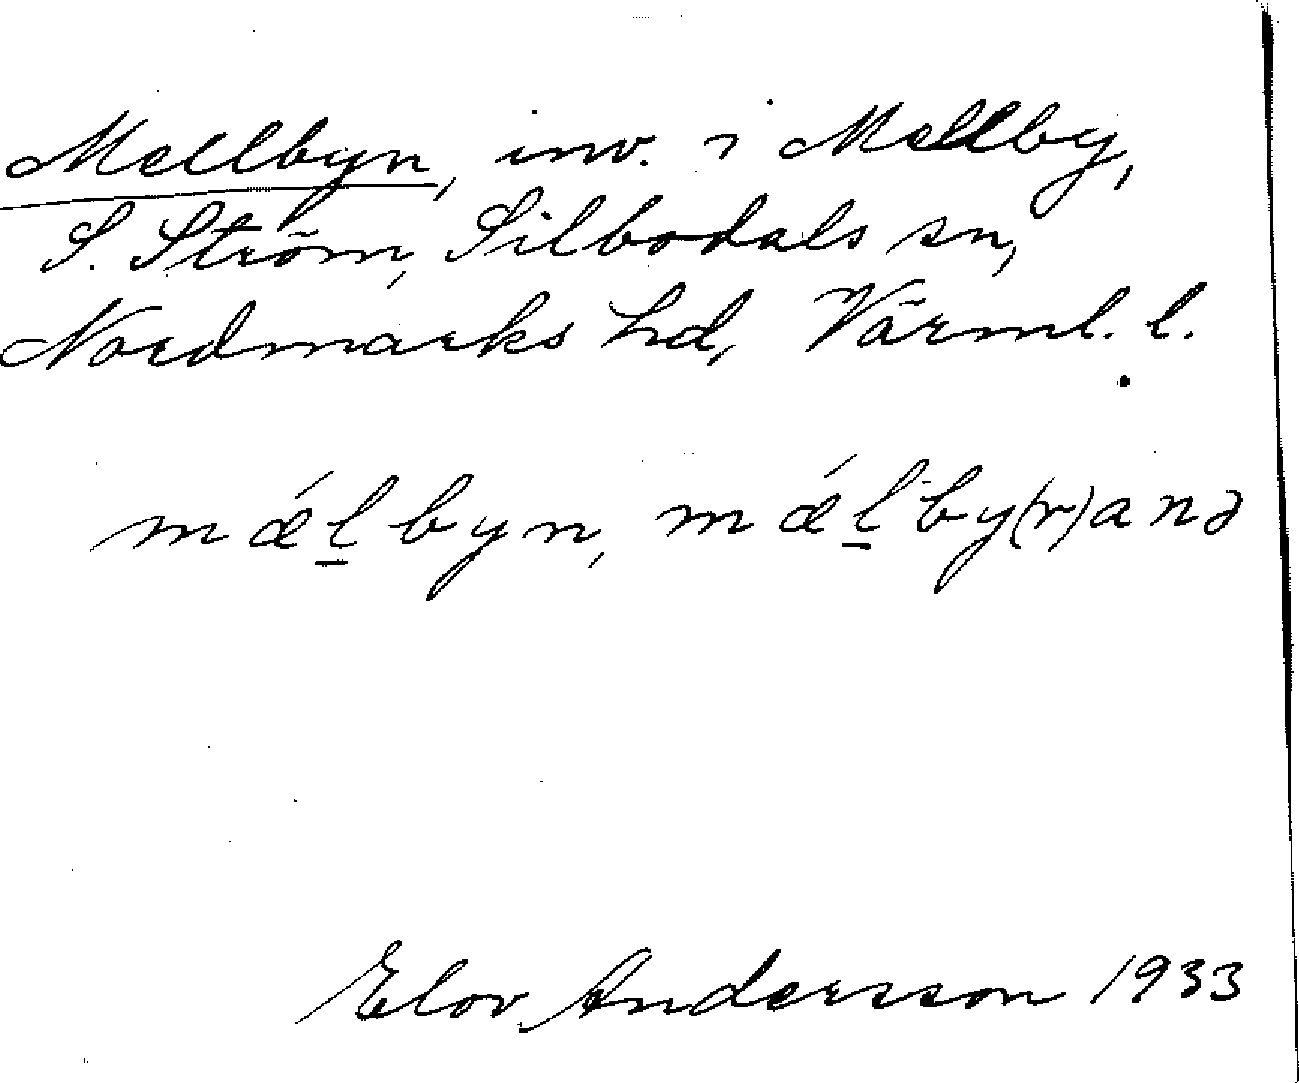 Mellbyn, inv. i Mellby,
S. Ström, Silbodals sn,
Nordmarks hd, Värml. l.
mǽl̲byn, mǽl̲by(r)anə
Elov Andersson 1933